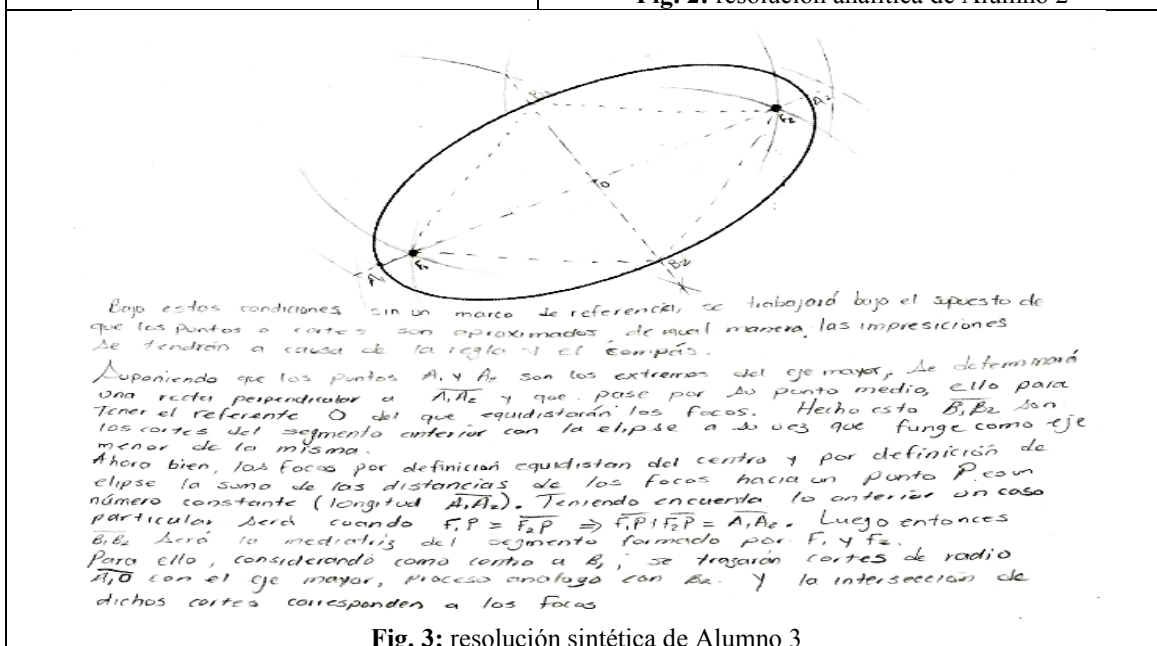 Fig. 2: resolución analítica de Alumno 2
B1
A2
F2
O
F1
A1
B2
Bajo estas condiciones sin un marco de referencia, se trabajará bajo el spuesto de
que los puntos o cortes son aproximados, de igual manera las impresiciones
se tendrán a causa de la regla y el compás.
Suponiendo que los puntos A1 y A2 son los extremos del eje mayor, se determinará
una recta perpendicular a A1A2 y que pase por su punto medio, ello para
tener el referente O del que equidistarán los focos. Hecho esto B1B2 son
los cortes del segmento anterior con la elipse a su vez que funge como eje
menor de la misma.
Ahora bien, los focos por definición equidistan del centro y por definición de
elipse la suma de las distancias de los focos hacia un punto P es un
número constante (longitud A1A2). Teniendo encuenta lo anterior un caso
particular será cuando F1P = F2P ⇒ F1P+F2P = A1A2. Luego entonces
B1B2 será la mediatriz del segmento formado por F1 y F2.
Para ello, considerando como centro a B1, se trazarán cortes de radio
A1O con el eje mayor, proceso análogo con B2. Y la intersección de
dichos cortes corresponden a los focos
Fig. 3: resolución sintética de Alumno 3